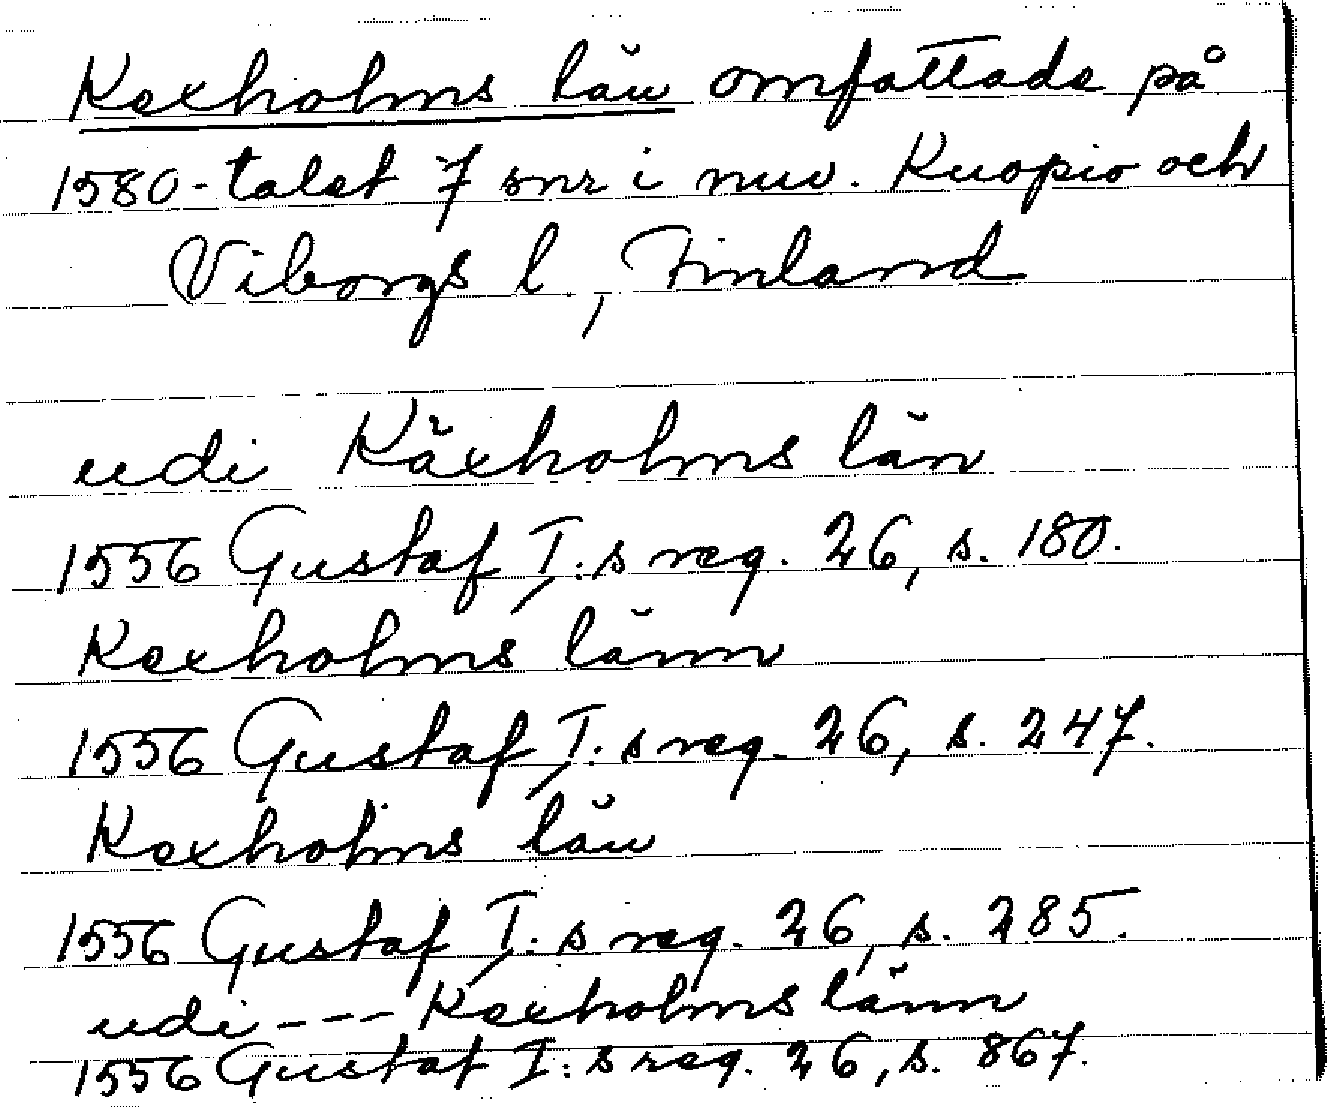 Kexholms län omfattade på
1580-talet 7 snr i nuv. Kuopio och
Viborgs l, Finland
udi Käxholms län
1556 Gustaf I:s reg. 26, s. 180.
Kexholms länn
1556 Gustaf I:s reg. 26, s. 247.
Kexholms län
1556 Gustaf I:s reg. 26, s. 285.
udi --- Kexholms länn
1556 Gustaf I:s reg. 26, s. 867.